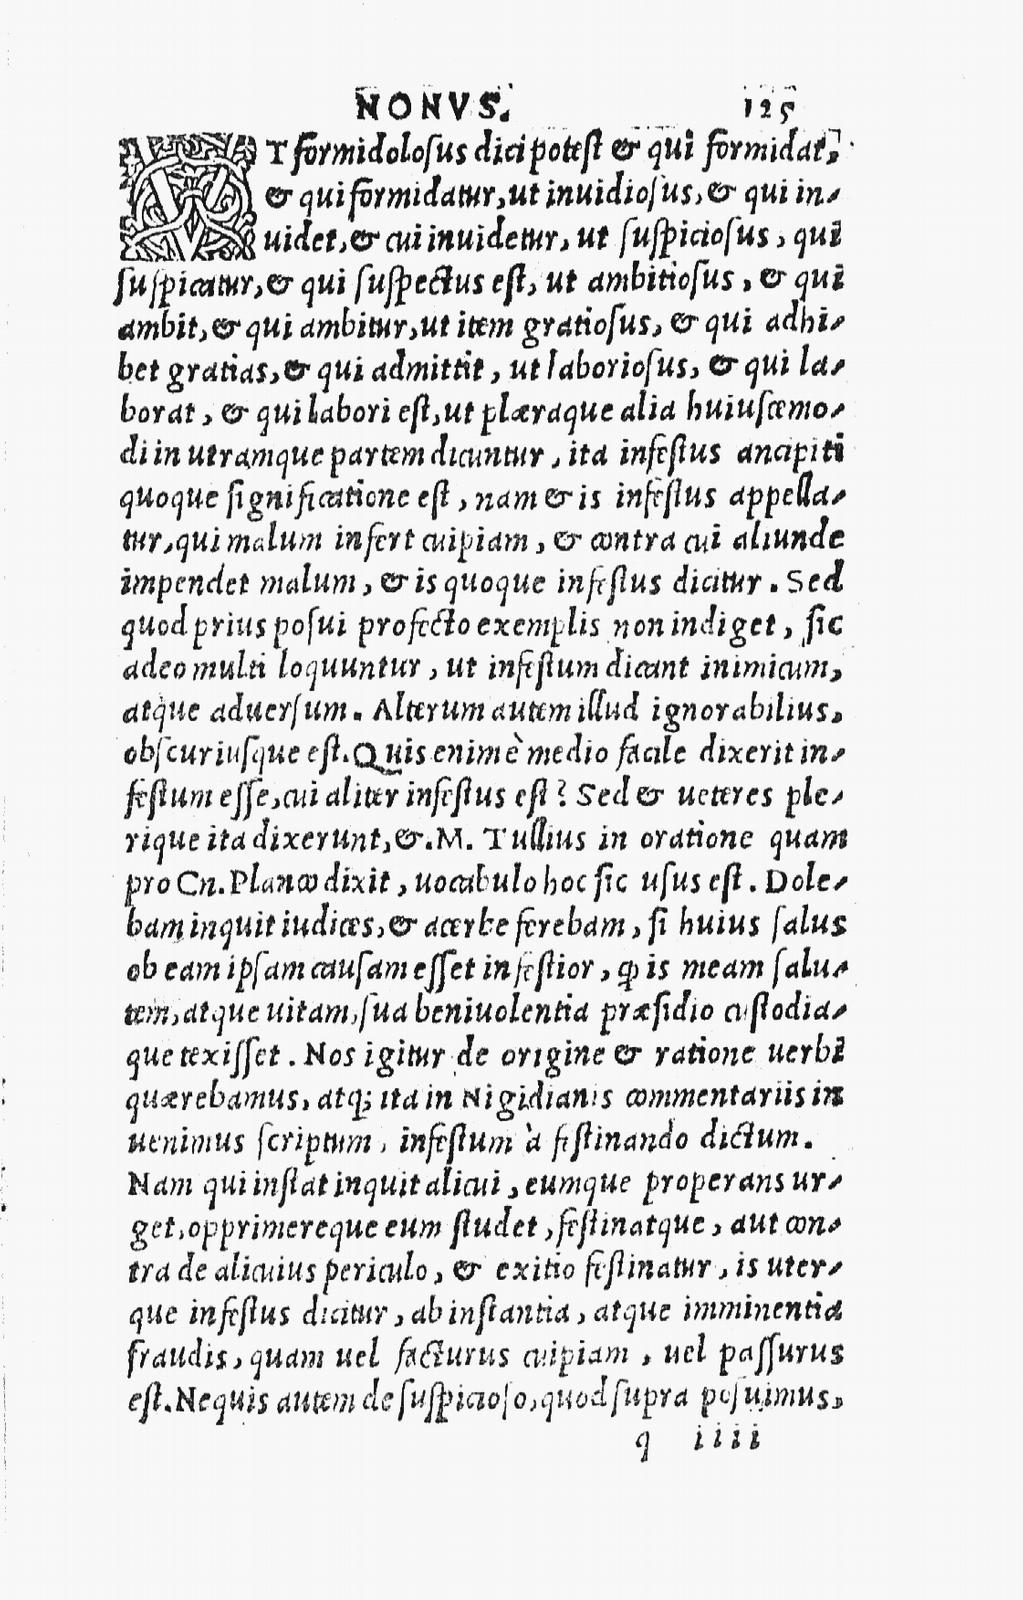 NONVS. 125
VT formidolosus dici potest & qui formidat,
& qui formidatur, ut inuidiosus, & qui in-
uidet, & cui inuidetur, ut suspiciosus, qui
suspicatur, & qui suspectus est, ut ambitiosus, & qui
ambit, & qui ambitur, ut item gratiosus, & qui adhi-
bet gratias, & qui admittit, ut laboriosus, & qui la-
borat, & qui labori est, ut plæraque alia huiuscemo-
di in utramque partem dicuntur, ita infestus ancipiti
quoque significatione est, nam & is infestus appella-
tur, qui malum infert cuipiam, & contra cui aliunde
impendet malum, & is quoque infestus dicitur. Sed
quod prius posui profecto exemplis non indiget, sic
adeo multi loquuntur, ut infestum dicant inimicum,
atque aduersum. Alterum autem illud ignorabilius,
obscuriusque est. Quis enim è medio facile dixerit in-
festum esse, cui aliter infestus est? Sed & ueteres ple-
rique ita dixerunt, &. M. Tullius in oratione quam
pro Cn. Planco dixit, uocabulo hoc sic usus est. Dole-
bam inquit iudices, & acerbe ferebam, si huius salus
ob eam ipsam causam esset infestior, ꝙ is meam salu-
tem, atque uitam, sua beniuolentia præsidio custodia-
que texisset. Nos igitur de origine & ratione uerbi
quærebamus, atq; ita in Nigidianis commentariis in
uenimus scriptum, infestum à festinando dictum.
Nam qui instat inquit alicui, eumque properans ur-
get, opprimereque eum studet, festinatque, aut con-
tra de alicuius periculo, & exitio festinatur, is uter-
que infestus dicitur, ab instantia, atque imminentia
fraudis, quam uel facturus cuipiam, uel passurus
est. Nequis autem de suspicioso, quod supra posuimus,
q iiii